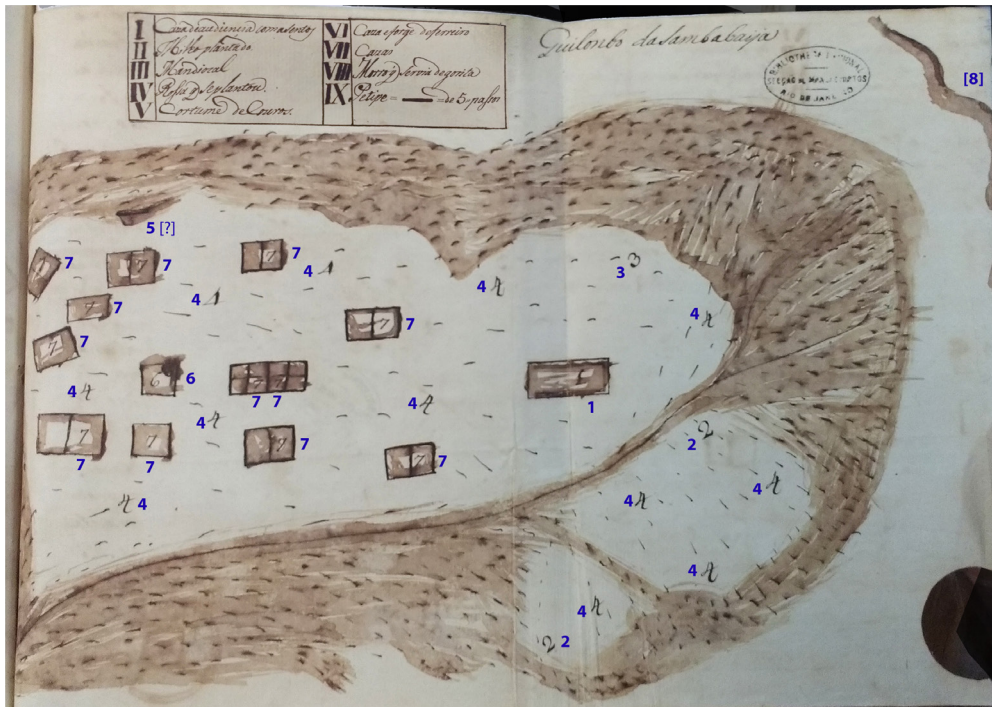 I Caza de audiencia com asentos
II Milho plantado
III Mandiocal
IV
V Cortume de Couros.
VI Caza e forge do ferreiro
VII Cazas
VIII Morro q Servia de gorita
IX. Petipe = = de 5 passos
Quilombo da Sambabaija
BIBLIOTHECA NACIONAL
SECÇAO DE MANUSCRIPTOS
RIO DE JANEIRO
[8]
5 [?]
7 7 7 7 7
4 1
4 4
3 3
4 1
7 7
4 4
7 7 7
7 7
6 6
7 7
7 7
1
4 4
4 4
4 4
7 7
7 7
7 7
7 7
2 2
4 4
4 4
4 4
4 4
4 4
2 2